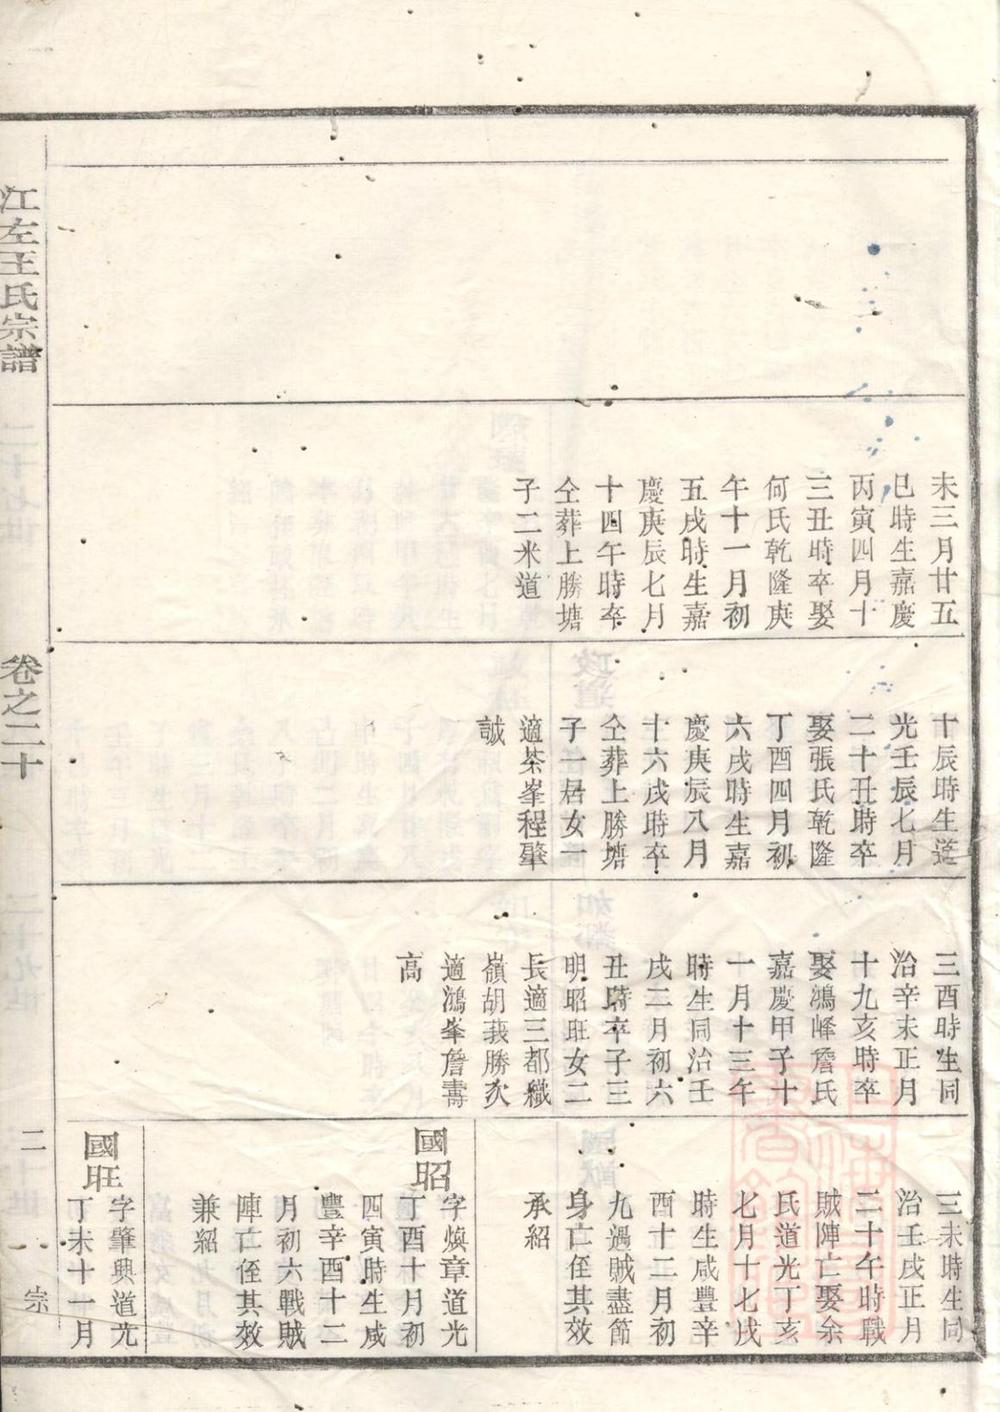 未三月廿五
巳時生嘉慶
丙寅四月十
三丑時卒娶
何氏乾隆庚
午十一月初
五戌時生嘉
慶庚辰七月
十四午時卒
仝葬上勝塘
子二米道
十辰時生道
光壬辰七月
二十丑時卒
娶張氏乾隆
丁酉四月初
六戌時生嘉
慶庚辰八月
十六戌時卒
仝葬上勝塘
子一居女一
適茶峯程肇
誠
三酉時生同
治辛未正月
十九亥時卒
娶鴻峰詹氏
嘉慶甲子十
一月十三年
時生同治壬
戌二月初六
丑時卒子三
明昭旺女二
長適三都橶
嶺胡莪勝次
適鴻峯詹壽
高
三未時生同
治壬戌正月
二十午時戰
賊陣亡娶余
氏道光丁亥
七月十七戌
時生咸豐辛
酉十二月初
九遇賊盡節
身亡侄其效
承紹
國昭
字煥章道光
丁酉十月初
四寅時生咸
豐辛酉十二
月初六戰賊
陣亡侄其效
兼紹
國旺
字肇興道光
丁未十一月
江左王氏宗譜
卷之二十
二
宗